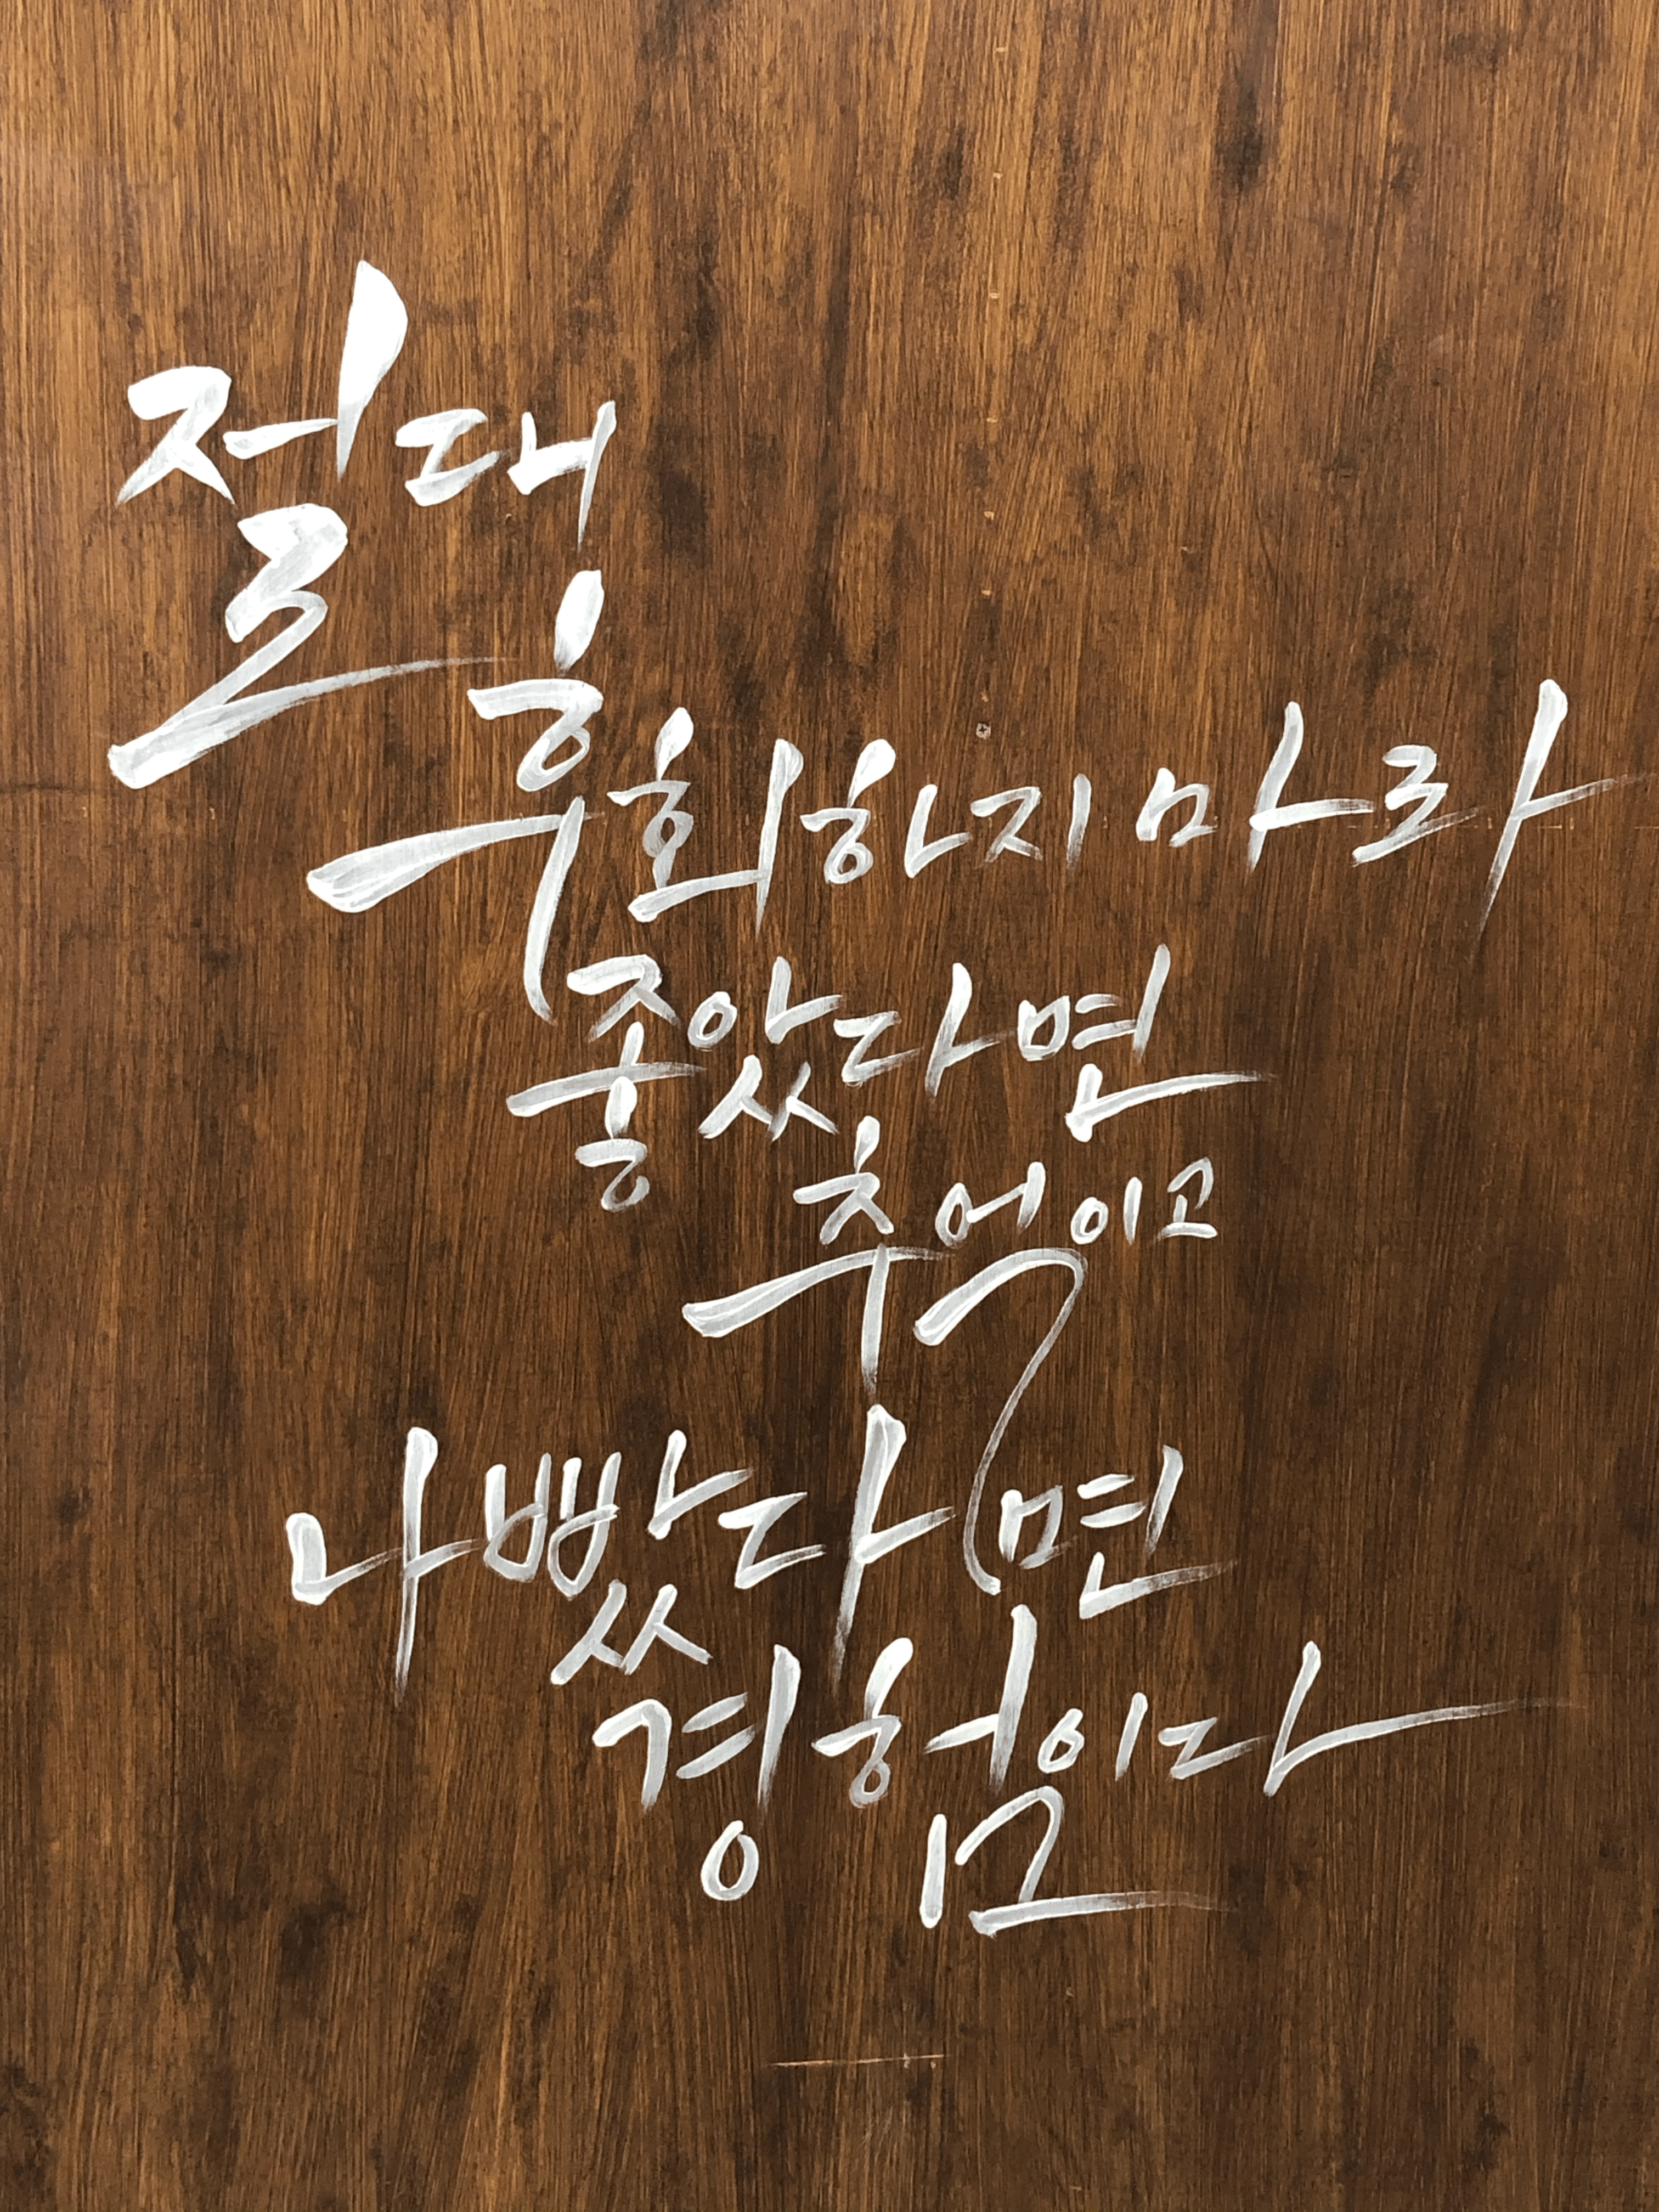 절대
후회하지 마라
좋았다면
추억이고
나빴다면
경험이다